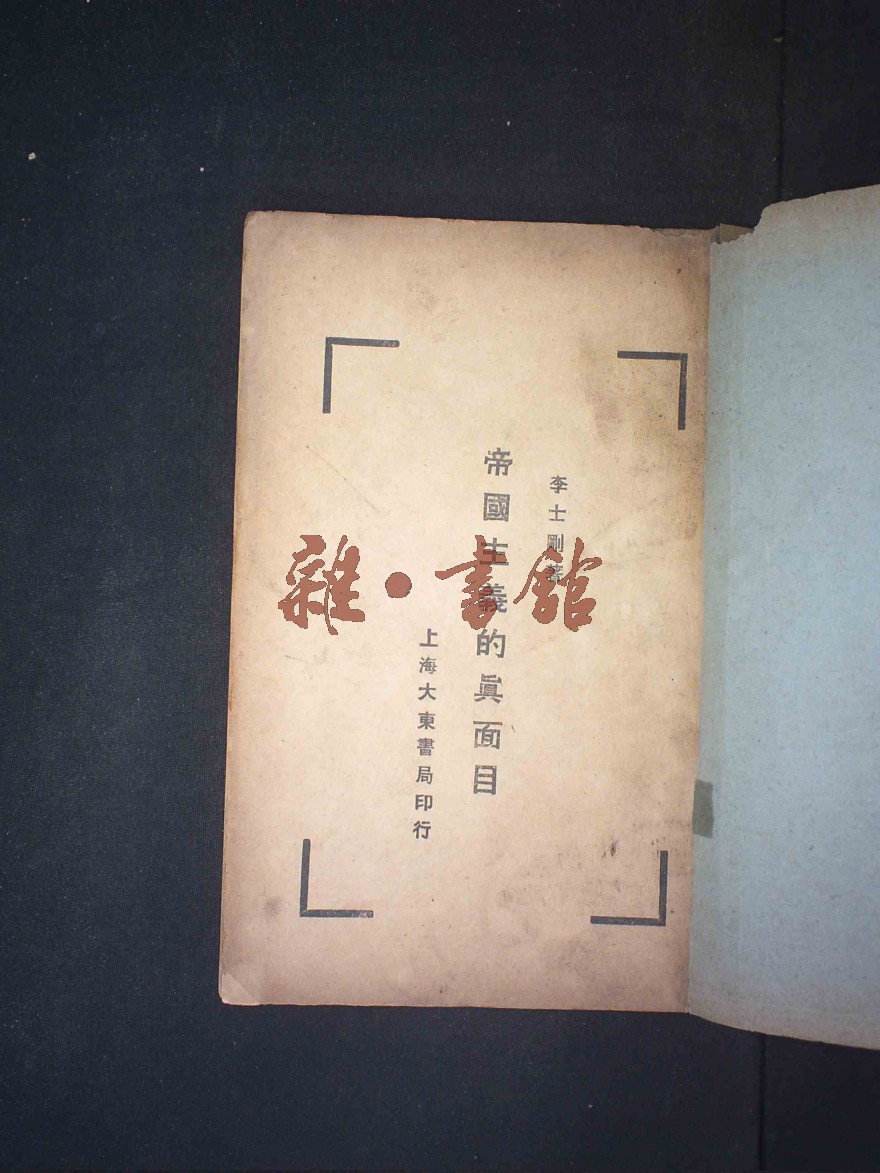 李士剛著
帝國主義的眞面目
上海大東書局印行
雜·書館